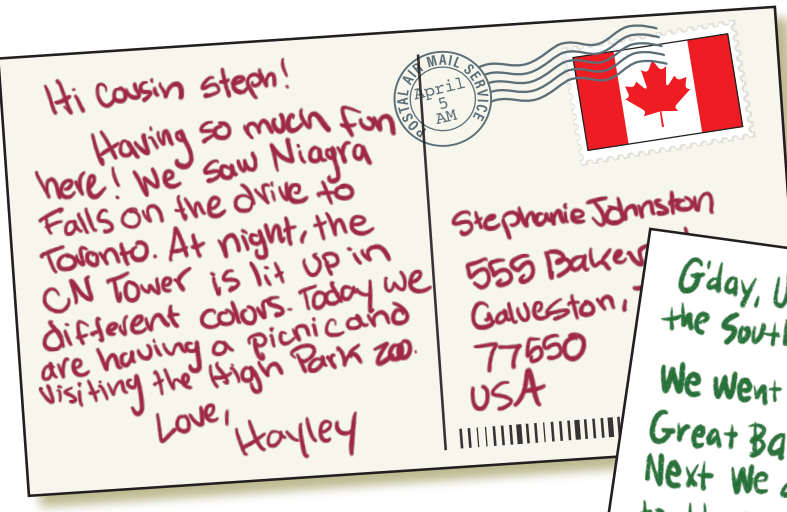 Hi Cousin Steph!
Having so much fun
here! We saw Niagra
Falls on the drive to
Toronto. At night, the
CN Tower is lit up in
different colors. Today we
are having a picnic and
visiting the High Park zoo.
Love,
Hayley
POSTAL AIR MAIL SERVICE
April
5
AM
Stephanie Johnston
555 Baker
Galveston,
77550
USA
G'day, U
the South
We went
Great Ba
Next we